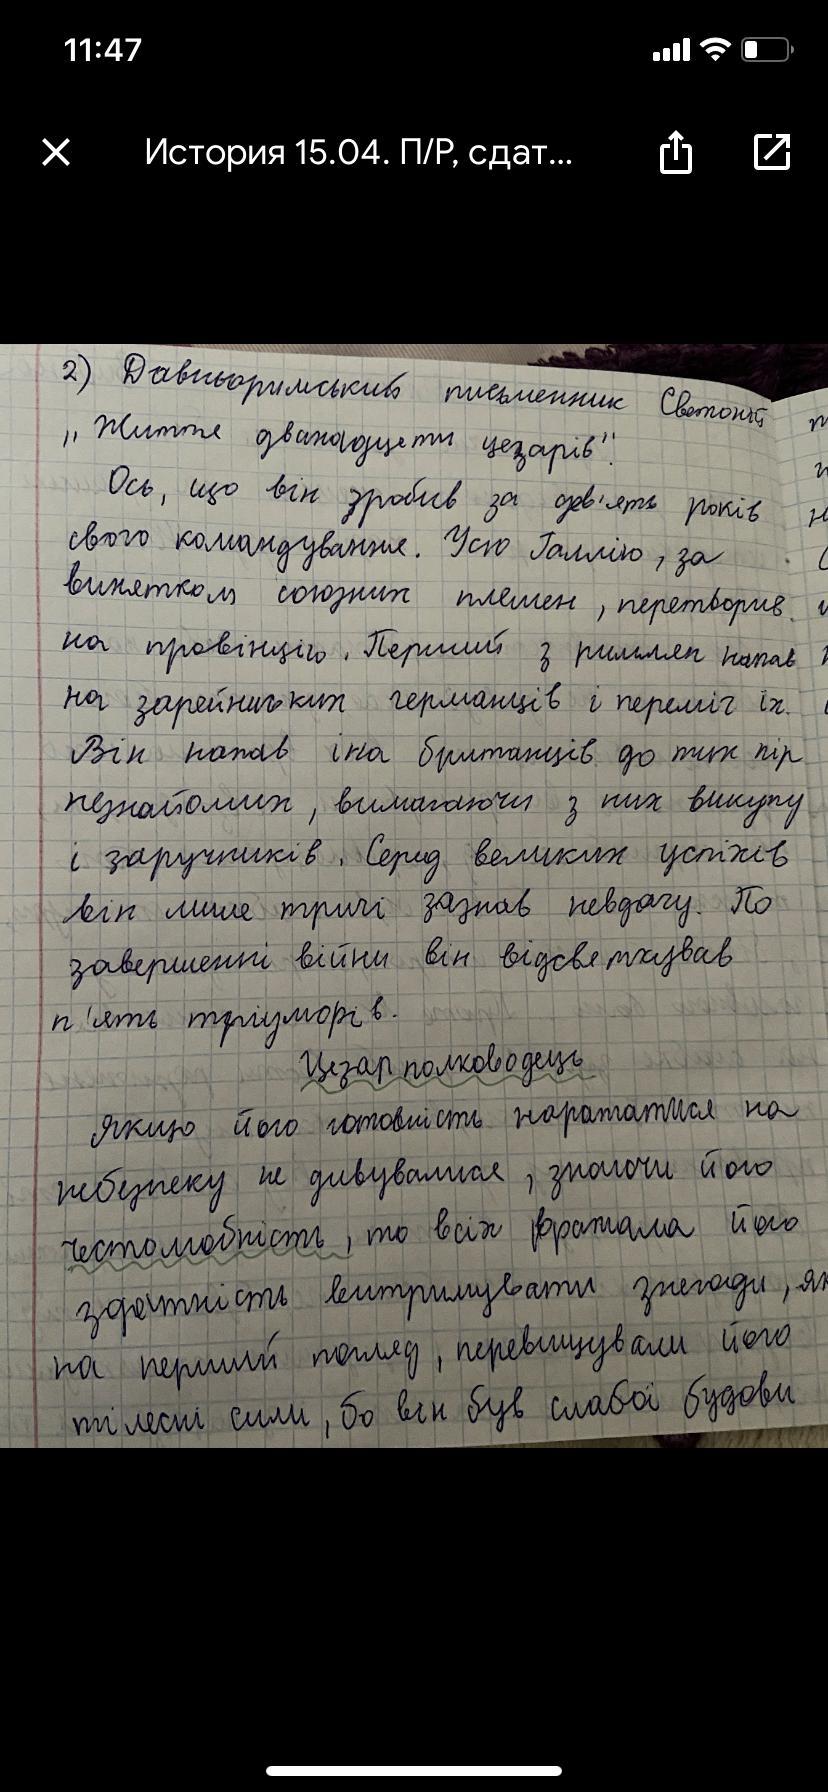 11:47
История 15.04. П/Р, сдат...
2) Давньоримський письменник Светоній
"Життя дванадцяти цезарів".
Ось, що він зробив за дев'ять років
свого командування. Усю Галлію, за
винятком союзних племен, перетворив
на провінцію. Перший з римлян напав
на зарейнських германців і переміг їх.
Він напав і на британців до тих пір
незнайомих, вимагаючи з них викупу
і заручників. Серед великих успіхів
він лише тричі зазнав невдачу. По
завершенні війни він відсвяткував
п'ять тріумфів.
Цезар полководець
Якщо його готовність наражатися на
небезпеку не дивувалися, знаючи його
честолюбність, то всіх вражала його
здатність витримувати знегоди, як
на перший погляд, перевищували його
тілесні сили, бо він був слабої будови